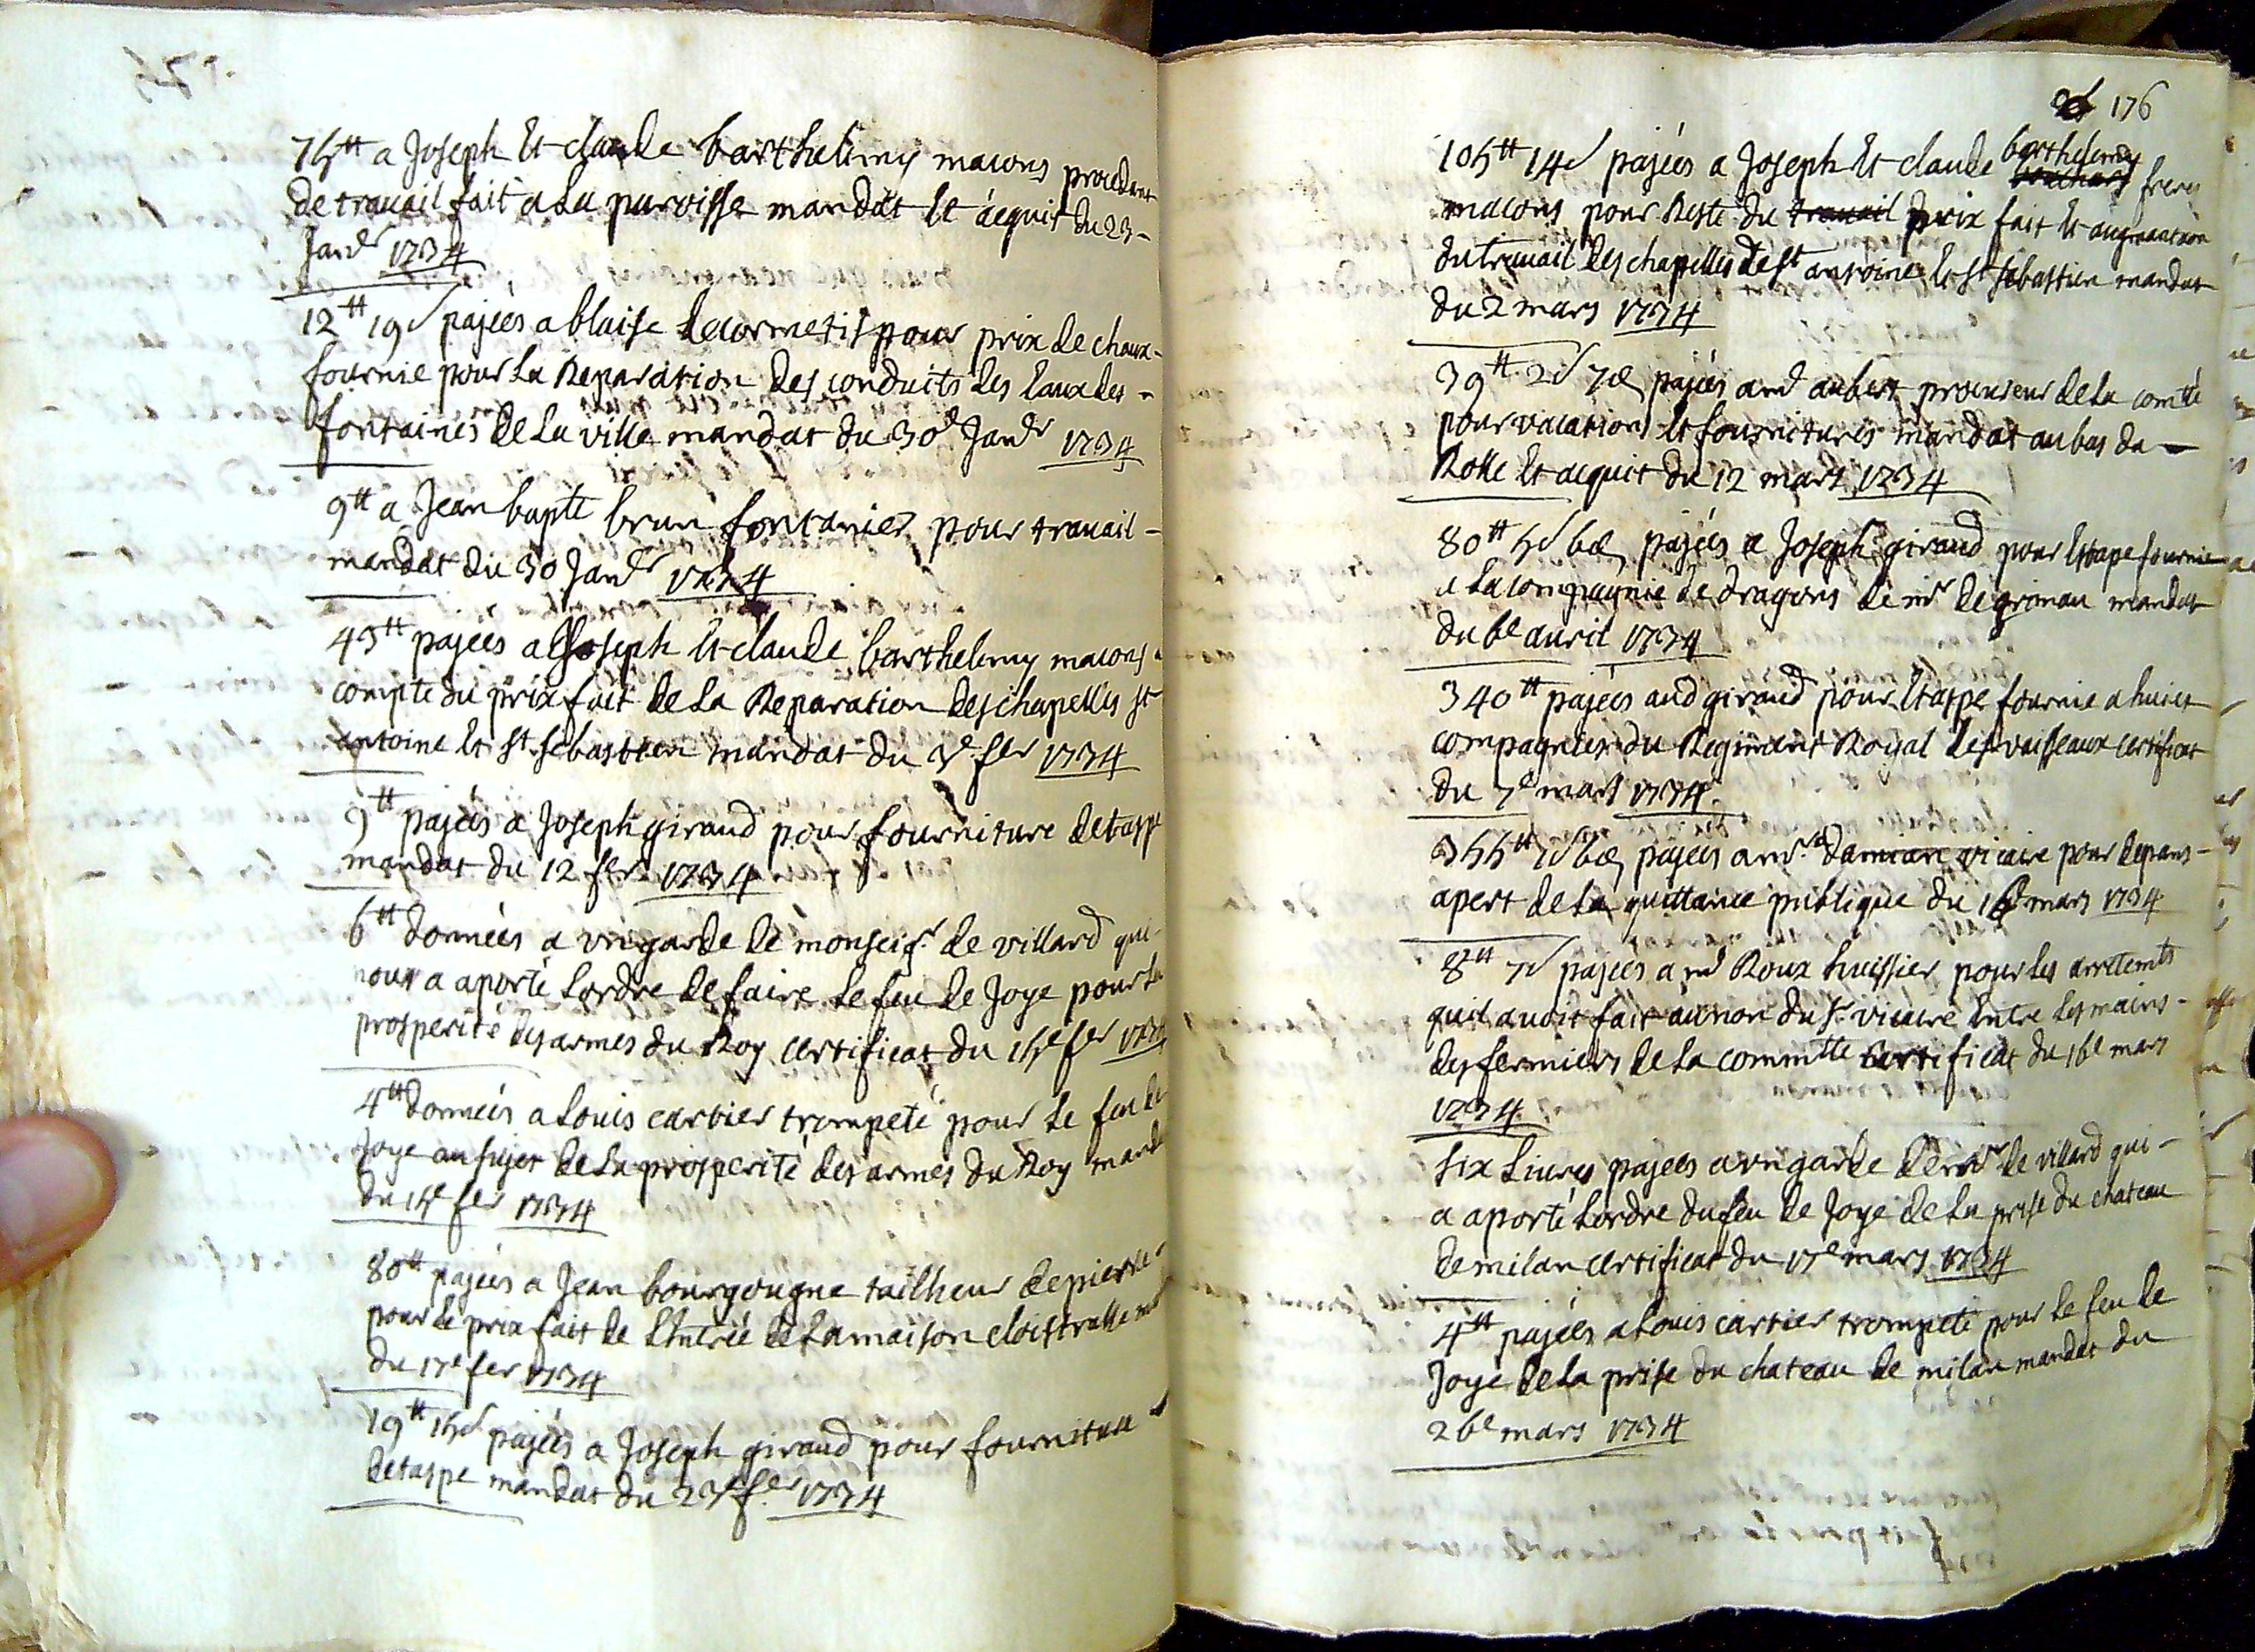 75tt a Joseph et claude barthelemy macons procedant
de travail fait a la paroisse mandat et acquit du 23
Janer 1734
12tt 19s payées a blaise decormetis pour prix de chaux
fournie pour la Reparation des conduits des Eaux des
fontaines de la ville mandat du 30e Janer 1734
9tt a Jean bapte brun fontanier pour travail
mandat du 30 Janer 1734
45tt payées a Joseph et claude barthelemy macons a
compte du prix fait de la Reparation des chapelles st
antoine et st sebastien mandat du 3e fer 1734
9tt payées a Joseph giraud pour fourniture detappe
mandat du 12 fer 1734
6tt données a vn garde de monseigr de villard qui
nous a aporté Lordre de faire le feu de Joye pour la
prosperité des armes du Roy certificat du 15e fer 1734
4tt données a Louis cartier trompete pour le feu de
Joye au sujet de la prosperité des armes du Roy mandt
du 15e fer 1734
80tt payées a Jean bourgougne tailheur de pierre
pour le prix fait de Lentrée de la maison cloistralle
du 17e fer 1734
19tt 15s payées a Joseph giraud pour fourniture
detaspe mandat du 23e fer 1734
176
105tt 14s payées a Joseph et claude barthelemy freres
macons pour Reste du travail prix fait et augmantation
du travail des chapelles de st antoine et st sebastien mandat
du 2 mars 1734
39tt 2s 7d payées a md aubert procureur de la comte
pour vacations et fournitures mandat au bas du
Rolle et acquit du 12 mars 1734
80tt 5s 6d payées a Joseph giraud pour Etape fournie
a la compagnie de dragons de mr de grimau mandat
du 6e avril 1734
340tt payées aud giraud pour Etaspe fournie a huict
compagnies du Regimant Royal des vaisseaux certificat
du 7e mars 1734
355tt 7s 6d payées a mr damian vicaire pour depans
apert de la quittance publique du 16 mars 1734
8tt 7s payées a md Roux huissier pour les arretemts
quil avoit fait au nom du sr vicaire Entre les mains
des fermiers de la commtte certificat du 16e mars
1734
six Livres payées a vn garde de mr de villard qui
a aporté Lordre du feu de Joye de la prise du chateau
de milan certificat du 17e mars 1734
4tt payées a Louis cartier trompete pour le feu de
Joye de la prise du chateau de milan mandat du
26e mars 1734